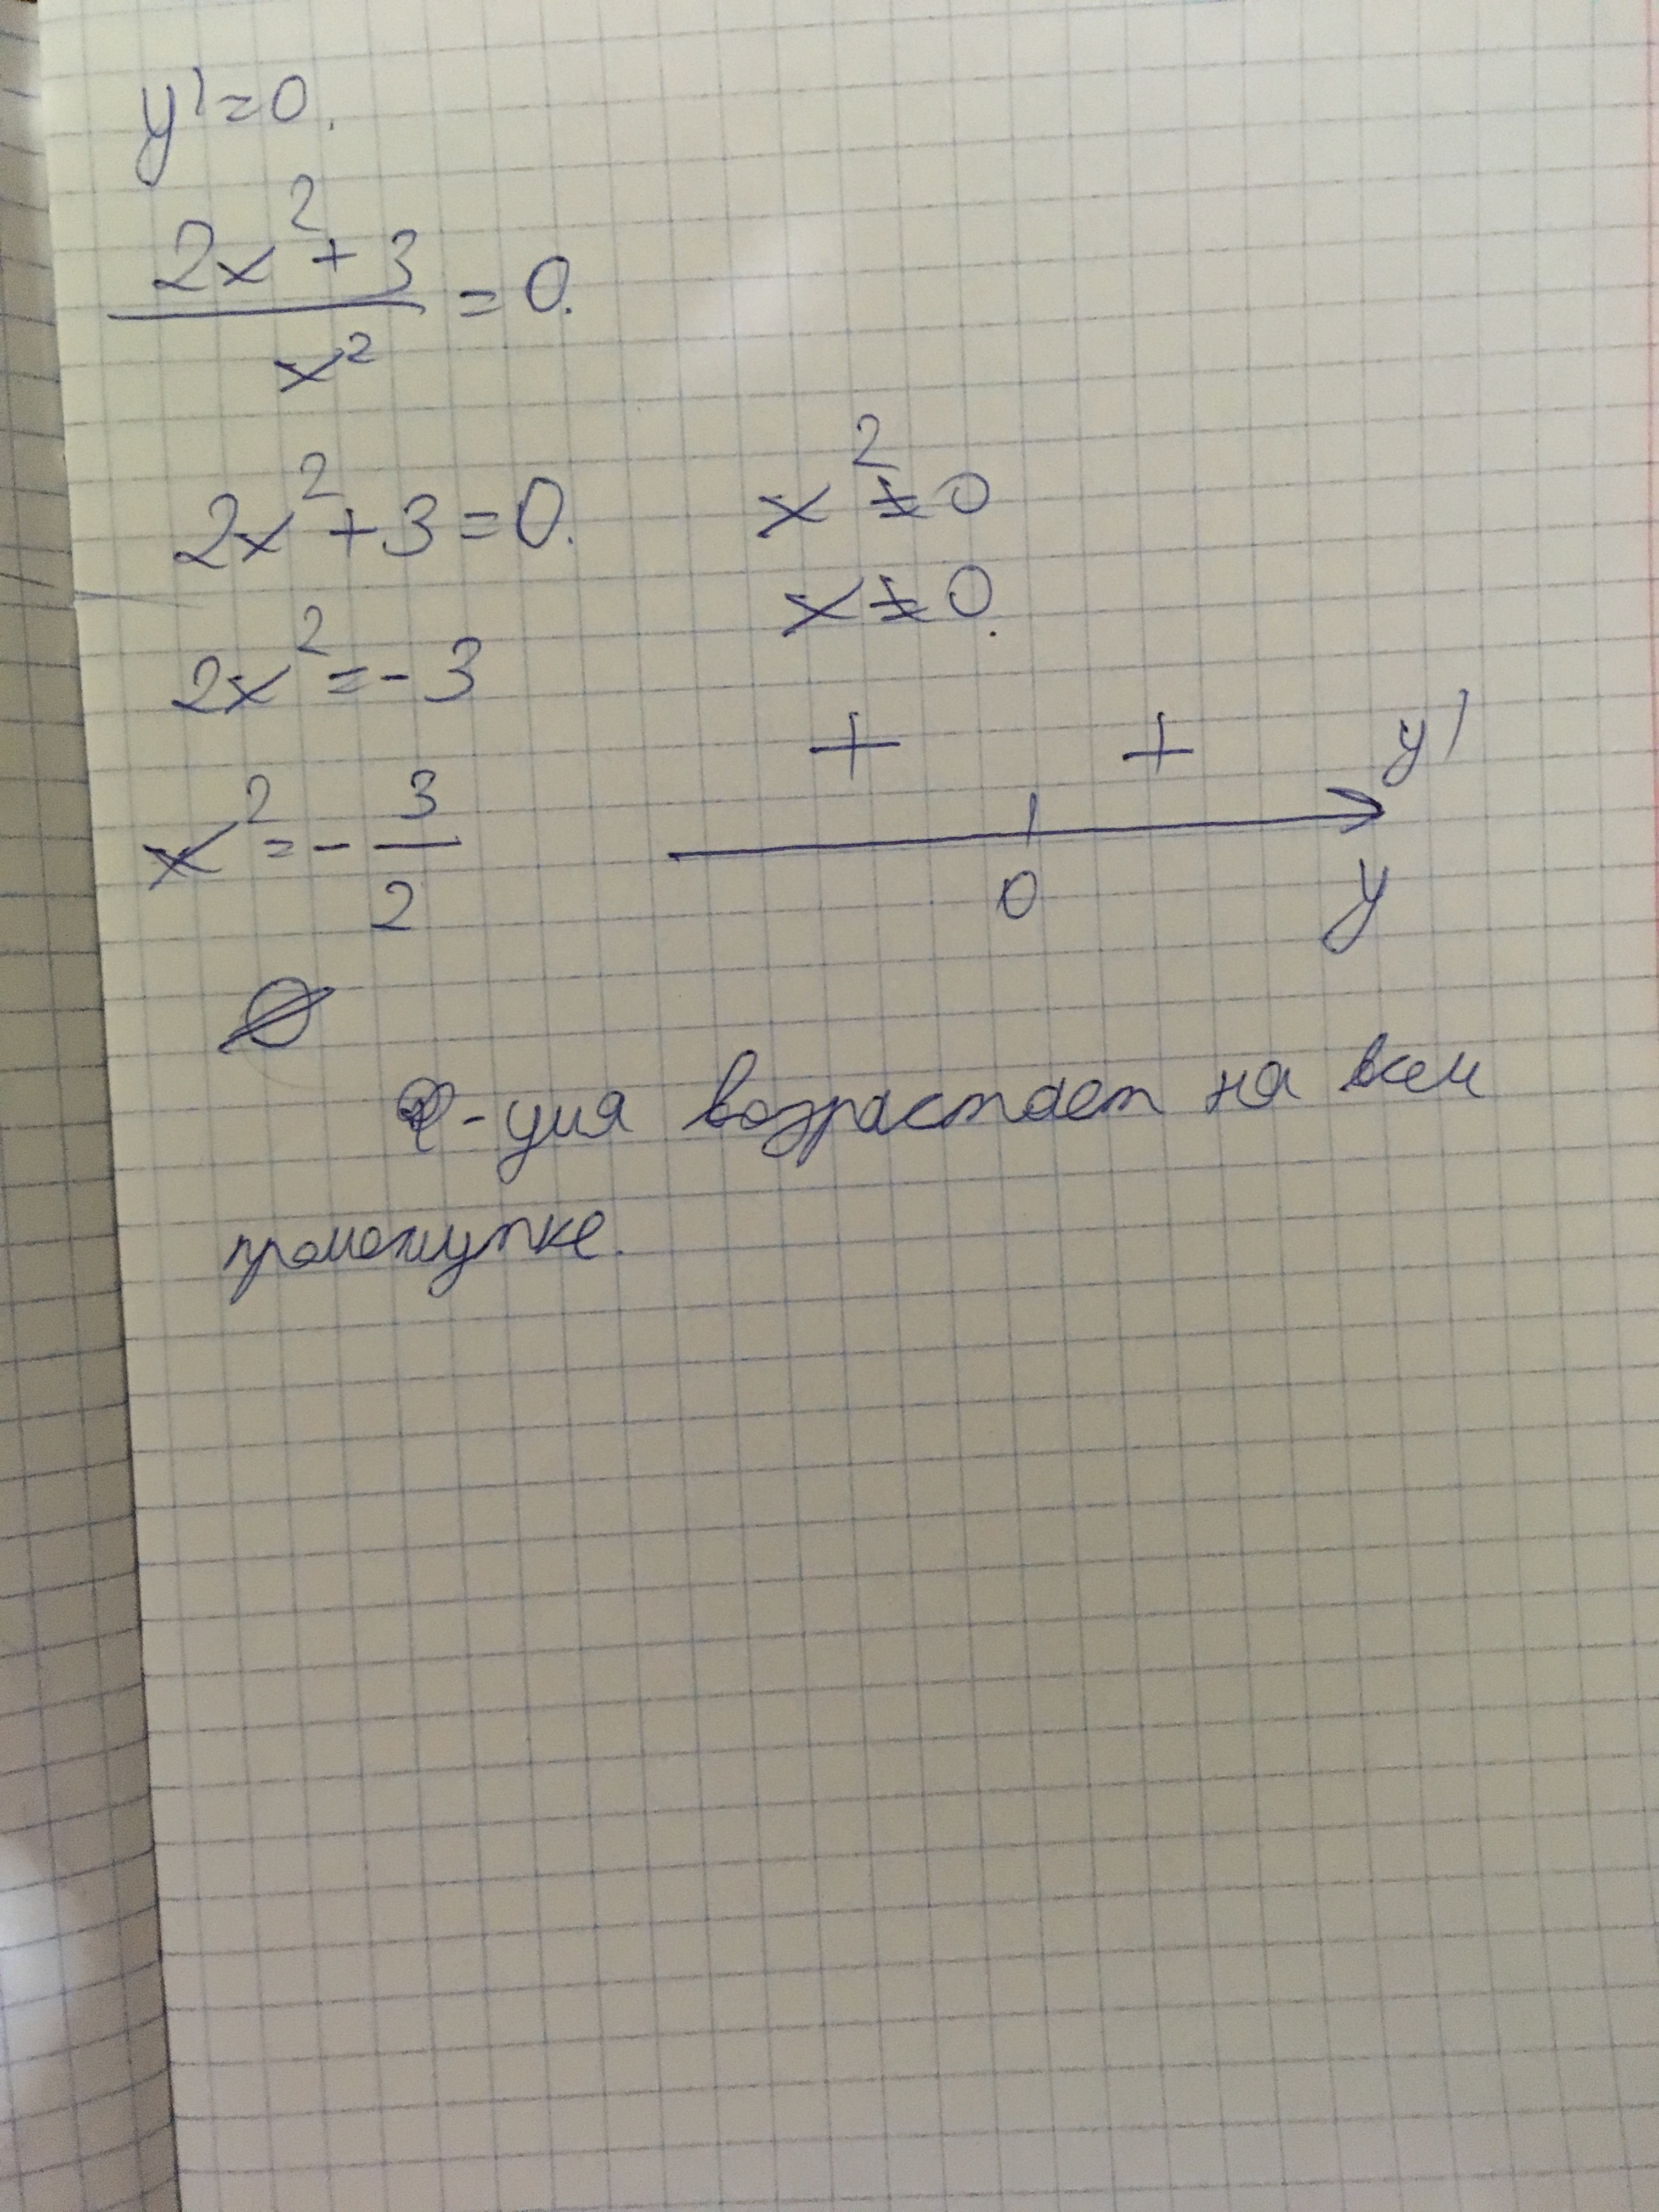 y'=0.
2x²+3
―――― =0.
x²
2x²+3=0. x²≠0
2x²=-3 x≠0.
+ + y'
x²=-3/2
0 y
∅
Ф-ция возрастает на всем
промежутке.